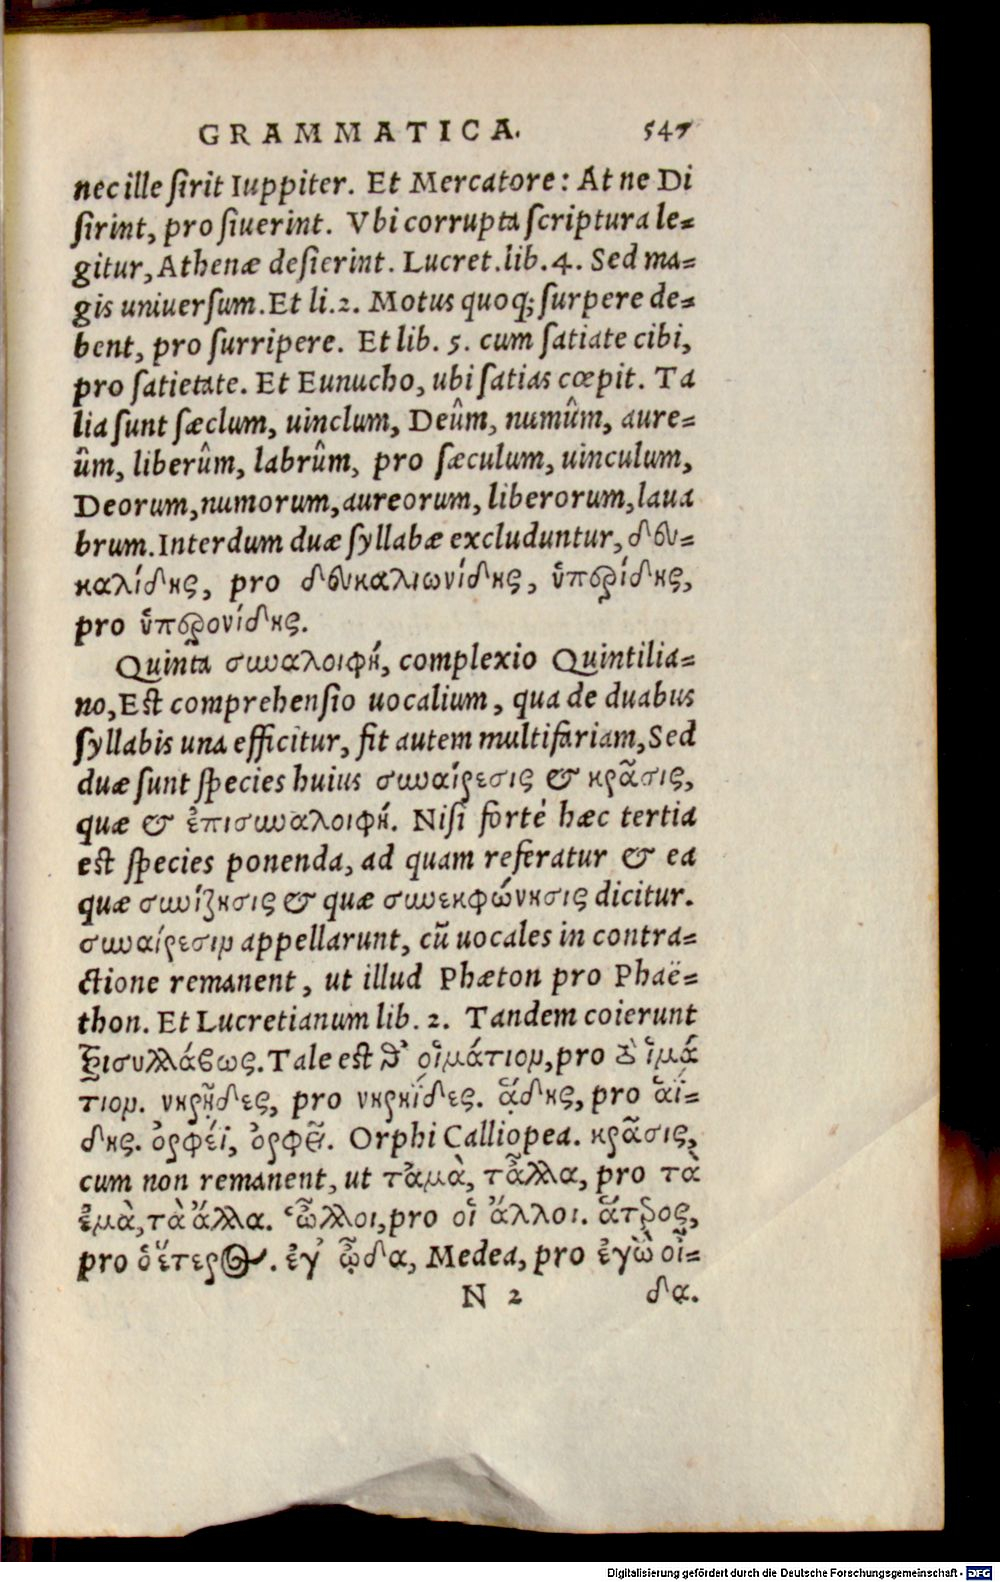 GRAMMATICA. 547
nec ille ſirit Iuppiter. Et Mercatore: At ne Di
ſirint, pro ſiuerint. Vbi corrupta ſcriptura le-
gitur, Athenæ deſierint. Lucret. lib. 4. Sed ma-
gis uniuerſum. Et li. 2. Motus quoq; ſurpere de-
bent, pro ſurripere. Et lib. 5. cum ſatiate cibi,
pro ſatietate. Et Eunucho, ubi ſatias cœpit. Ta
lia ſunt ſæclum, uinclum, Deûm, numûm, aure-
ûm, liberûm, labrûm, pro ſæculum, uinculum,
Deorum, numorum, aureorum, liberorum, laua
brum. Interdum duæ ſyllabæ excluduntur, δευ-
καλίδης, pro δευκαλιωνίδης, ὑπερίδης,
pro ὑπερονίδης.
Quinta συναλοιφή, complexio Quintilia-
no, Eſt comprehenſio uocalium, qua de duabus
ſyllabis una efficitur, fit autem multifariam, Sed
duæ ſunt ſpecies huius συναίρεσις & κρᾶσις,
quæ & ἐπισυναλοιφή. Niſi forté hæc tertia
eſt ſpecies ponenda, ad quam referatur & ea
quæ συνίζησις & quæ συνεκφώνησις dicitur.
συναίρεσιν appellarunt, cũ uocales in contra-
ctione remanent, ut illud Phæton pro Phaë-
thon. Et Lucretianum lib. 2. Tandem coierunt
τρισυλλάβως. Tale est θ' οἱμάτιον, pro τὸ ἱμά
τιον. νηρῇδες, pro νηρηΐδες. ᾅδης, pro ἀΐ-
δης. ὀρφέϊ, ὀρφεῖ. Orphi Calliopea. κρᾶσις,
cum non remanent, ut τἀμὰ, τἆλλα, pro τὰ
ἐμὰ, τὰ ἄλλα. ὧλλοι, pro οἱ ἄλλοι. ἅτερος,
pro ὁ ἕτερος. ἐγ' ᾦδα, Medea, pro ἐγὼ οἶ-
N 2 δα.
Digitalisierung gefördert durch die Deutsche Forschungsgemeinschaft - DFG